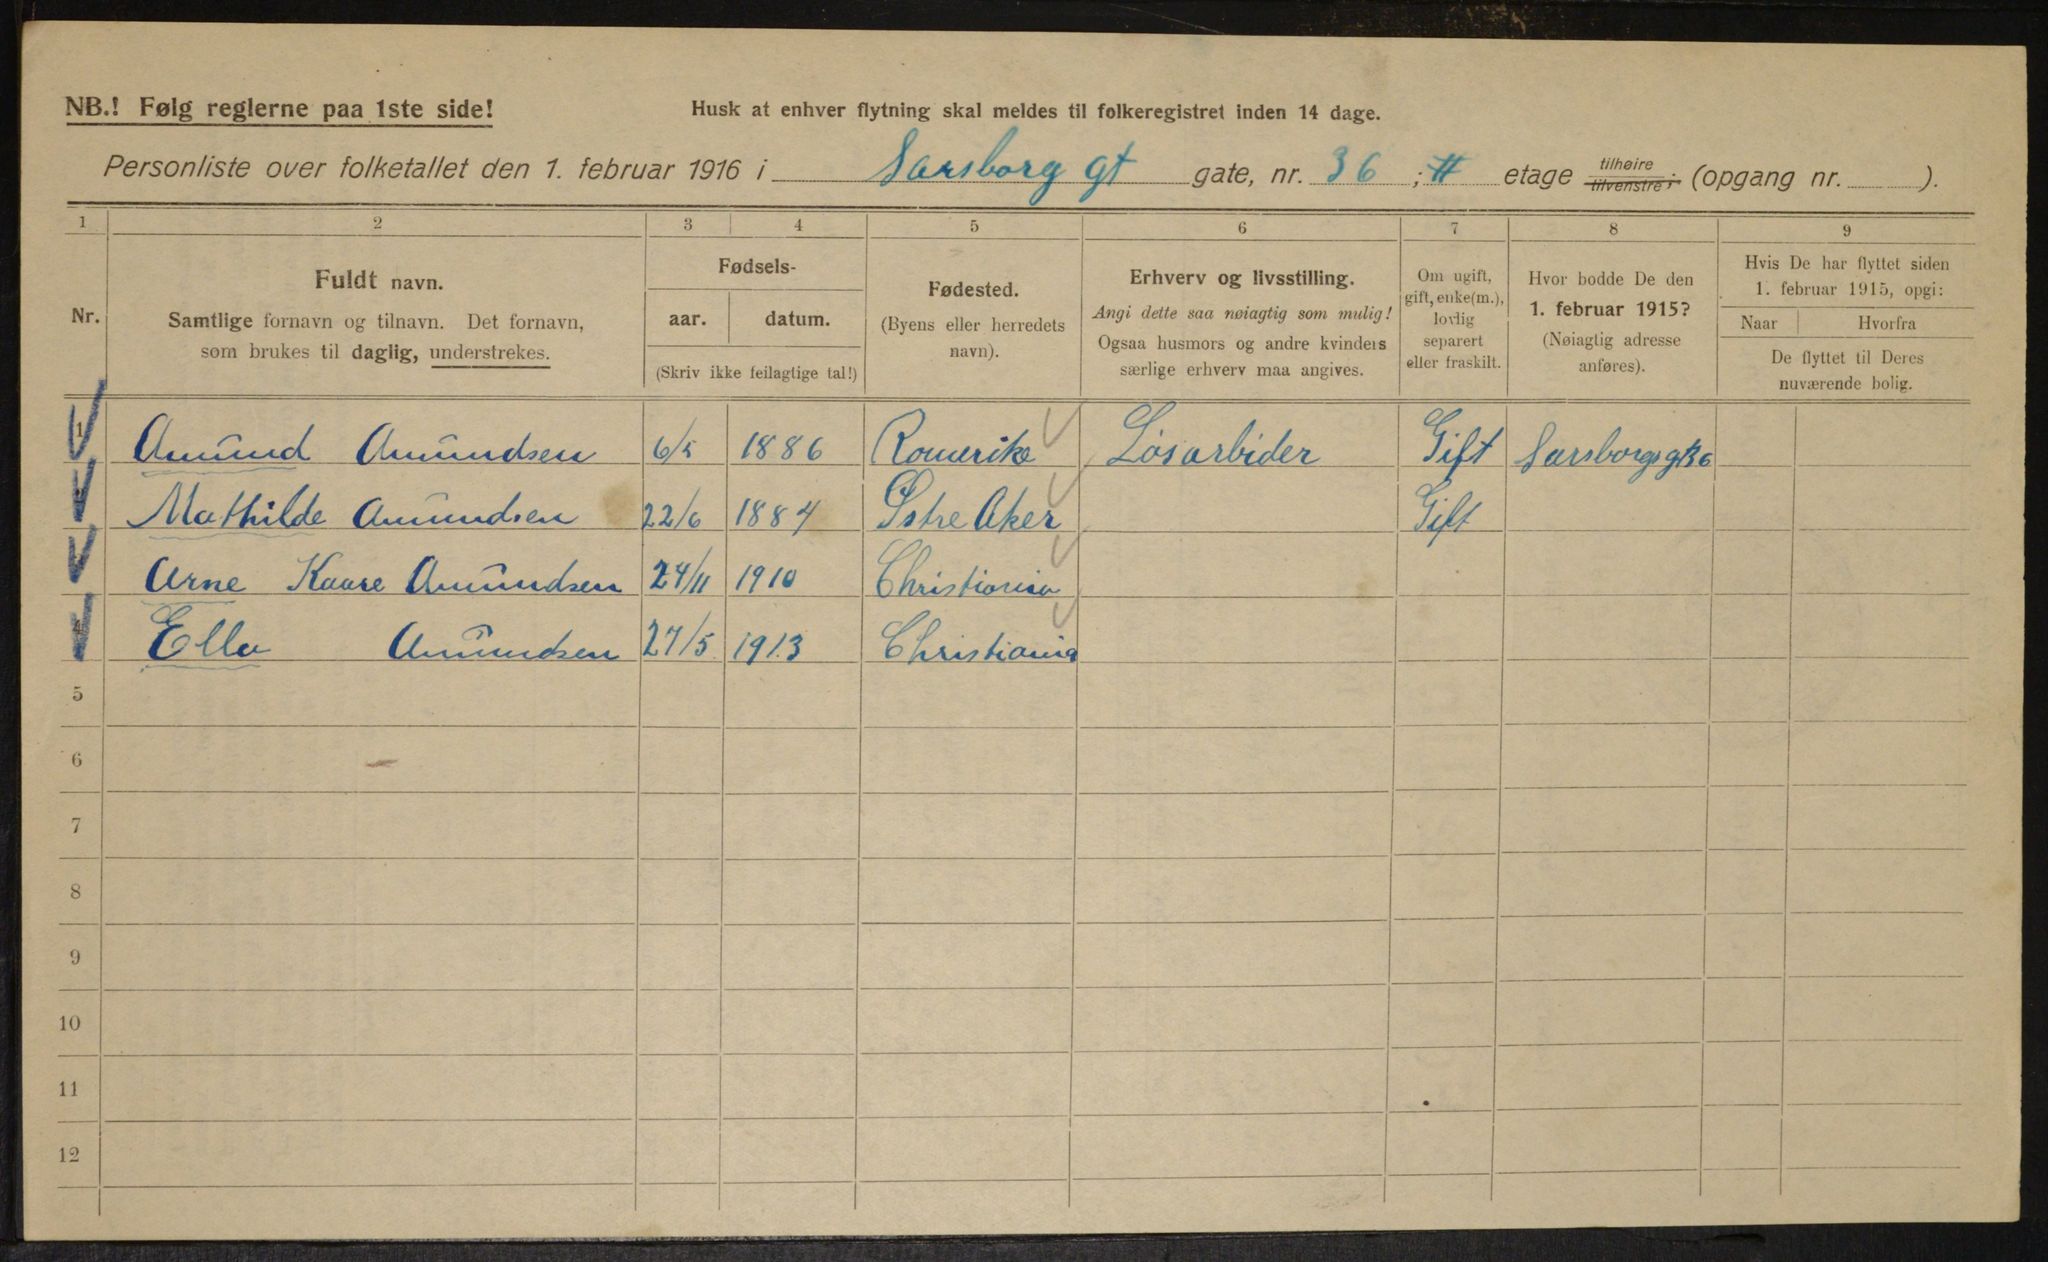 NB.! Følg reglerne paa 1ste side!
Husk at enhver flytning skal meldes til folkeregistret inden 14 dage.
Personliste over folketallet den 1. februar 1916 i Sarsborg gt gate, nr. 36; II etage tilhøire tilvenstre; (opgang nr. ).
1 2 3 4 5 6 7 8 9
Nr.
Fuldt navn.
Samtlige fornavn og tilnavn. Det fornavn,
som brukes til daglig, understrekes.
Fødsels-
aar. datum.
(Skriv ikke feilagtige tal!)
Fødested.
(Byens eller herredets
navn).
Erhverv og livsstilling.
Angi dette saa nøiagtig som mulig!
Ogsaa husmors og andre kvinders
særlige erhverv maa angives.
Om ugift,
gift, enke(m.),
lovlig
separert
eller fraskilt.
Hvor bodde De den
1. februar 1915?
(Nøiagtig adresse
anføres).
Hvis De har flyttet siden
1. februar 1915, opgi:
Naar Hvorfra
De flyttet til Deres
nuværende bolig.
1 Amund Amundsen 6/5 1886 Romerike Løsarbider Gift Sarsborgsgt 36
Mathilde Amundsen 22/6 1884 Østre Aker Gift
Arne Kaare Amundsen 24/11 1910 Christiania
4 Ella Amundsen 27/5 1913 Christiania
5
6
7
8
9
10
11
12